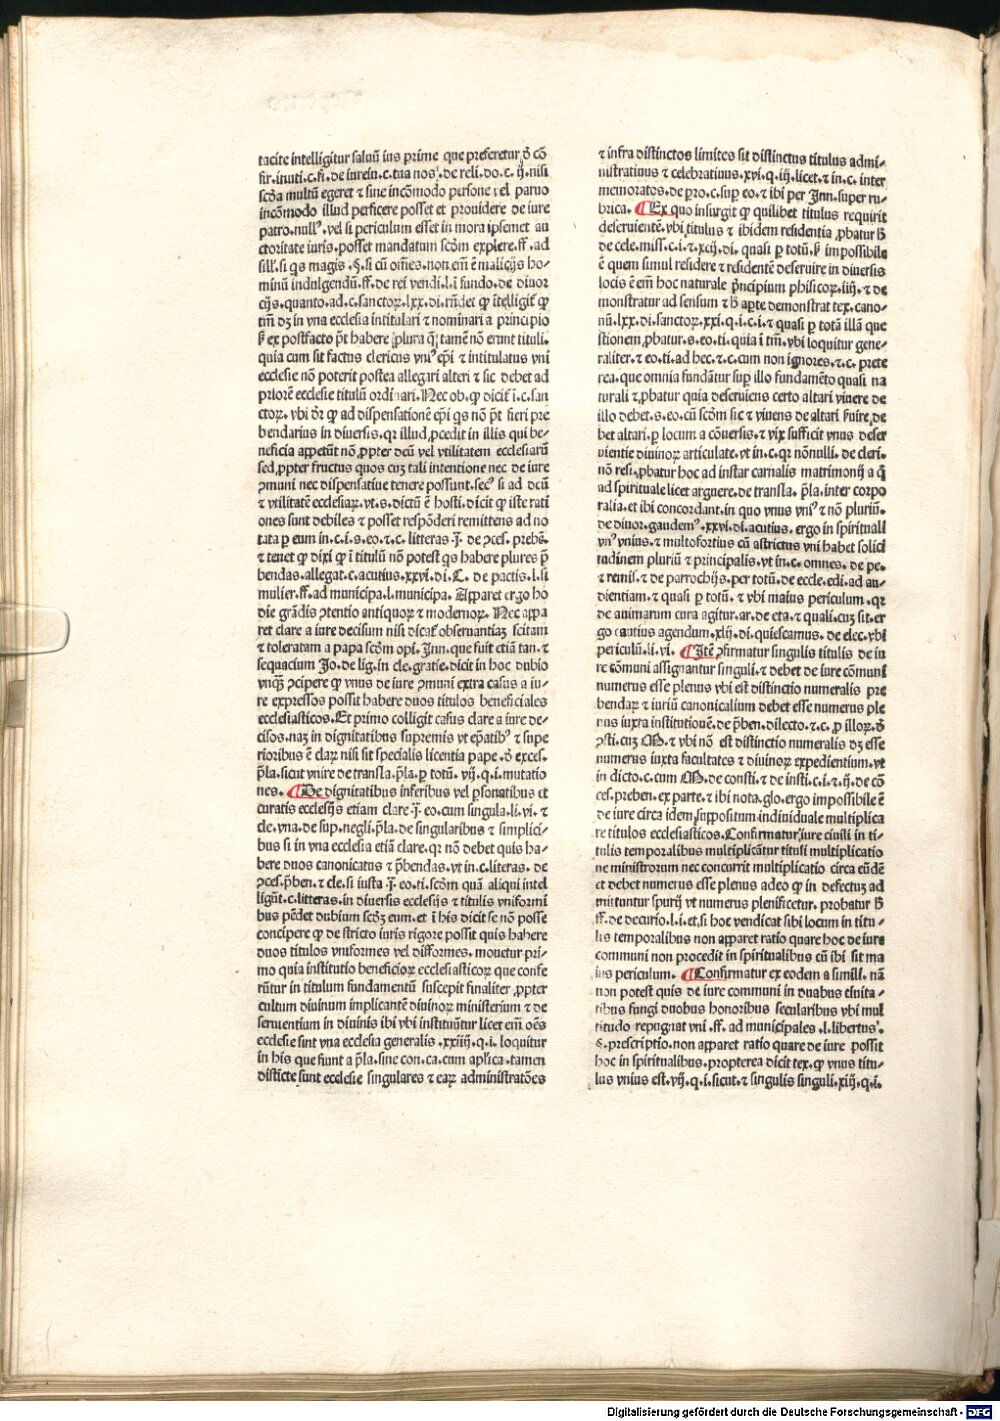 tacite intelligitur saluū ius prime que preferetur ꝺ̄ cō
fir. inuti. c. fi. de iureiu. c. tua nos'. de reli. do. c. ij. nisi
scd̄a multū egeret ⁊ sine incōmodo persone vel paruo
incōmodo illud perficere posset et prouidere de iure
patro. null'. vel si periculum esset in mora ipsemet au
ctoritate iuris. posset mandatum scd̄m explere. ff. ad
sill'. si q̄s magis. §. si cū om̄es. non em̄ ē malicijs ho-
minū indulgendū. ff. de rei vendi. l. i fundo. de diuor
cijs. quanto. ad. c. sanctoꝝ. lxx. di. rn̄det ꝙ ītelligit̄ ꝙ
tm̄ dꝫ in vna ecclesia intitulari ⁊ nominari a principio
ꝉ ex postfacto pōt habere plura q̄ tamē nō erunt tituli.
quia cum sit factus clericus vni' ep̄i ⁊ intitulatus vni
ecclesie nō poterit postea allegari alteri ⁊ sic debet ad
priorē ecclesie titulū ordinari. Nec ob. ꝙ dicit̄ ī. c. san
ctoꝝ. vbi dr̄ ꝙ ad dispensationē ep̄i q̄s nō pōt fieri pre
bendarius in diuersis. qꝛ illud ꝓcedit in illis qui be-
neficia appetūt nō ꝓpter deū vel vtilitatem ecclesiarū
sed ꝓpter fructus quos cuꝫ tali intentione nec de iure
ꝯmuni nec dispensatiue tenere possunt. sec' si ad deū
⁊ vtilitatē ecclesiaꝝ. vt. s. dictū ē hosti. dicit ꝙ iste rati
ones sunt debiles ⁊ posset respōderi remittens ad no
tata ꝑ eum in. c. i. s. eo. ⁊. c. litteras. j̄. de ꝯces. preb̄.
⁊ tenet ꝙ dixi ꝙ ī titulū nō potest q̄s habere plures p̄
bendas. allegat. c. acutius. xxvi. di. C. de pactis. l. si
mulier. ff. ad municipa. l. municipa. Apparet ergo ho
die grādis ꝯtentio antiquoꝝ ⁊ modernoꝝ. Nec appa
ret clare a iure decisum nisi dicat̄ obseruantiaꝫ scitam
⁊ toleratam a papa scd̄m opi. Inn. que fuit etiā tan. ⁊
sequacium Jo. de lig. in cle. gratie. dicit in hoc dubio
vnqꝫ ꝯcipere ꝙ vnus de iure ꝯmuni extra casus a iu-
re expressos possit habere duos titulos beneficiales
ecclesiasticos. Et primo colligit casus clare a iure de-
cisos. naꝫ in dignitatibus supremis vt ep̄atib' ⁊ supe
rioribus ē clarꝫ nisi sit specialis licentia pape. ꝺ̄ exces.
p̄la. sicut vnire de transla. p̄la. ꝑ totū. vij. q. i. mutatio
nes. ¶ De dignitatibus inferibus vel ꝑsonatibus et
curatis ecclesijs etiam clare. j̄. eo. cum singula. li. vi. ⁊
cle. vna. de sup. negli. p̄la. de singularibus ⁊ simplici-
bus si in vna ecclesia etiā clare. qꝛ nō debet quis ha-
bere duos canonicatus ⁊ p̄bendas. vt in. c. literas. de
ꝯces. p̄ben. ⁊ cle. si iusta. j̄. eo. ti. scd̄m quā aliqui intel
ligūt. c. litteras. in diuersis ecclesijs ⁊ titulis vniformi
bus pēdet dubium scd̄ꝫ eum. et ī his dicit se nō posse
concipere ꝙ de stricto iuris rigore possit quis habere
duos titulos vniformes vel difformes. mouetur pri-
mo quia institutio beneficioꝝ ecclesiasticoꝝ que confe
rūtur in titulum fundamentū suscepit finaliter ꝓpter
cultum diuinum implicantē diuinoꝝ ministerium ⁊ de
seruientium in diuinis ibi vbi instituūtur licet em̄ oēs
ecclesie sint vna ecclesia generalis. xxiiij. q. i. loquitur
in his que fiunt a p̄la. sine con. ca. cum apl̄ica. tamen
distīcte sunt ecclesie singulares ⁊ eaꝝ administratōes
⁊ infra distinctos limites sit distinctus titulus admi-
nistrationis ⁊ celebrationis. xvi. q. iij. licet. ⁊ in. c. inter
memoratos. de pro. c. sup eo. ⁊ ibi per Inn. super ru-
brica. ¶ Ex quo insurgit ꝙ quilibet titulus requirit
deseruientē. vbi titulus ⁊ ibidem residentia ꝓbatur ħ
de cele. miss. c. i. ⁊. xcij. di. quasi ꝑ totū. ꝉ impossibile
ē quem simul residere ⁊ residentē deseruire in diuersis
locis ē em̄ hoc naturale p̄ncipium phisicoꝝ. iiij. ⁊ de
monstratur ad sensum ⁊ ħ aꝑte demonstrat tex. cano-
nū. lxx. di. sanctoꝝ. xxi. q. i. c. i. ⁊ quasi ꝑ totā illā que
stionem ꝓbatur. s. eo. ti. quia ī tm̄. vbi loquitur gene-
raliter. ⁊ eo. ti. ad hec. ⁊. c. cum non ignores. ⁊. c. prete
rea. que omnia fundātur sup illo fundamēto quasi na
turali ⁊ ꝓbatur quia deseruiens certo altari viuere de
illo debet. s. eo. cū scd̄m sic ⁊ viuens de altari ẜuire de
bet altari. ꝑ locum a cōuersis. ⁊ vix sufficit vnus deser
uientie diuinoꝝ articulate. vt in. c. qꝛ nōnulli. de cleri.
nō resi. ꝓbatur hoc ad instar carnalis matrimonij a q̄
ad spirituale licet arguere. de transla. p̄la. inter corpo
ralia. et ibi concordant. in quo vnus vni' ⁊ nō pluriū.
de diuor. gaudem'. xxvi. di. acutius. ergo in spirituali
vn' vnius. ⁊ multofortius cū astrictus vni habet solici
tudinem pluriū ⁊ principalis. vt in. c. omnes. de pe.
⁊ remis. ⁊ de parrochijs. per totū. de eccle. edi. ad au-
dientiam. ⁊ quasi ꝑ totū. ⁊ vbi maius periculum. qꝛ
de animarum cura agitur. ar. de eta. ⁊ quali. cuꝫ sit. er
go cautius agendum. xlij. di. quiescamus. de elec. vbi
periculū. li. vi. ¶ Itē ꝯfirmatur singulis titulis de iu
re cōmuni assignantur singuli. ⁊ debet de iure cōmuni
numerus esse plenus vbi est distinctio numeralis pre
bendaꝝ ⁊ iuriū canonicalium debet esse numerus ple
nus iuxta institutionē. de p̄ben. dilecto. ⁊. c. ꝑ illoꝝ. ꝺ̄
ꝯsti. cuꝫ M. ⁊ vbi nō est distinctio numeralis dꝫ esse
numerus iuxta facultates ⁊ diuinoꝝ expedientium. vt
in dicto. c. cum M. de consti. ⁊ de insti. c. i. ⁊. ij. de cō
ces. preben. ex parte. ⁊ ibi nota. glo. ergo impossibile ē
de iure circa idem suppositum indiuiduale multiplica
re titulos ecclesiasticos. Confirmatur iure ciuili in ti-
tulis temporalibus multiplicātur tituli multiplicatio
ne ministrorum nec concurrit multiplicatio circa eūdē
et debet numerus esse plenus adeo ꝙ in defectuꝫ ad
mittuntur spurij vt numerus plenificetur. probatur ħ
ff. de decurio. l. i. et. si hoc vendicat sibi locum in titu-
lis temporalibus non apparet ratio quare hoc de iure
communi non procedit in spiritualibus cū ibi sit ma
ius periculum. ¶ Confirmatur ex eodem a simili. nā
non potest quis de iure communi in duabus ciuita-
tibus fungi duobus honoribus secularibus vbi mul
titudo repugnat vni. ff. ad municipales. l. libertus.
§. prescriptio. non apparet ratio quare de iure possit
hoc in spiritualibus. propterea dicit tex. ꝙ vnus titu-
lus vnius est. vij. q. i. sicut. ⁊ singulis singuli. xiij. q. i.
Digitalisierung gefördert durch die Deutsche Forschungsgemeinschaft - DFG